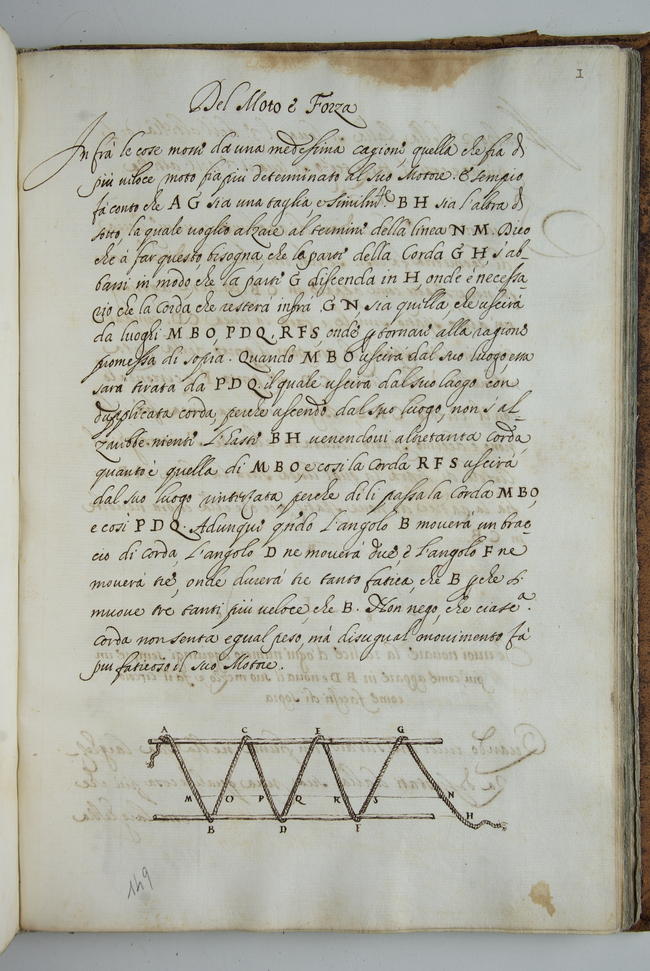 1
Del Moto e Forza
Infrà le cose mosse da una medessima cagione quella che fia di
più veloce moto fia più determinato al suo Motore. Esempio
fà conto che A G sia una taglia e similmte B H sia l'altra di
sotto, la quale voglio alzare al termine della linea N M. Dico
che à far questo bisogna che la parte della Corda G H s'ab
bassi in modo, che la parte G discenda in H, onde è necessa
rio che la Corda che resterà infra G N, sia quella, che uscirà
da luoghi M B O, P D Q, R F S, onde p tornare alla ragione
promessa di sopra. Quando M B O uscirà dal suo luogo, essa
sarà tirata da P D Q il quale uscirà dal suo luogo con
dupplicata corda, perche uscendo dal suo luogo, non s'al-
zarebbe niente l'haste B H venendovi altretanta corda,
quanto è quella di M B O, e così la Corda R F S uscirà
dal suo luogo interzata, perche di li passa la Corda M B O,
e così P D Q. Adunque qndo l'angolo B moverà un brac-
cio di corda, l'angolo D ne moverà due, è l'angolo F ne
moverà tre, onde durerà tre tanto fatica, che B pche si
muove tre tanti più veloce, che B. Non nego, che ciasca
corda non senta egual peso, mà disugual movimento fà
più faticoso il suo Motore.
A C E G
M O P Q R S N
B D F H
149